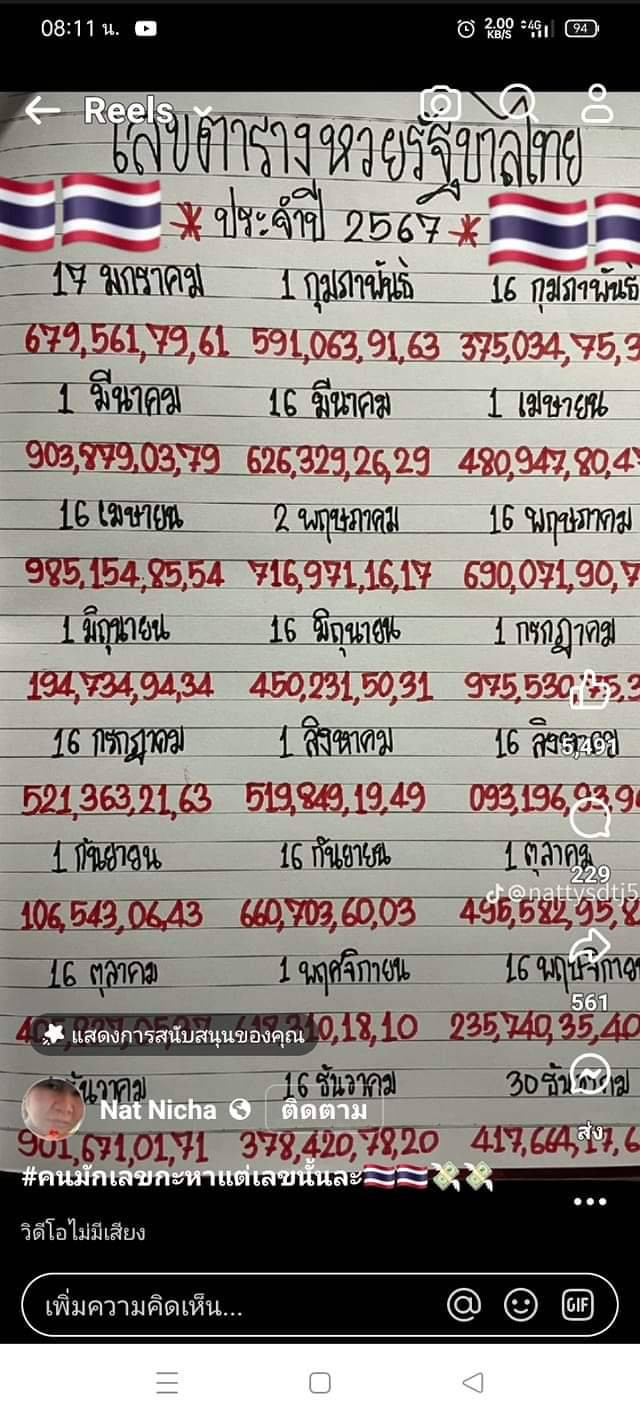 08:11 น.
2.00 KB/S 4G 94
Reels
เลขตารางหวยรัฐบาลไทย
* ประจำปี 2567 *
17 มกราคม 1 กุมภาพันธ์ 16 กุมภาพันธ์
679,561,79,61 591,063,91,63 375,034,75,3
1 มีนาคม 16 มีนาคม 1 เมษายน
903,879,03,79 626,329,26,29 480,947,80,4
16 เมษายน 2 พฤษภาคม 16 พฤษภาคม
985,154,85,54 716,971,16,17 690,071,90,7
1 มิถุนายน 16 มิถุนายน 1 กรกฎาคม
194,734,94,34 450,231,50,31 975,530,75,3
16 กรกฎาคม 1 สิงหาคม 16
5,491
521,363,21,63 519,849,19,49 093,196,93,9
1 กันยายน 16 กันยายน 1 ตุลาคม
229
@nattysdtj5
106,543,06,43 660,703,60,03 495,582,95,8
16 ตุลาคม 1 พฤศจิกายน 16
561
แสดงการสนับสนุนของคุณ
10,18,10 235,740,35,40
16 ธันวาคม 30
Nat Nicha ติดตาม
ส่ง
901,671,01,71 378,420,78,20 417,664,17,6
#คนมักเลขกะหาแต่เลขนั้นละ
วิดีโอไม่มีเสียง
เพิ่มความคิดเห็น...
GIF